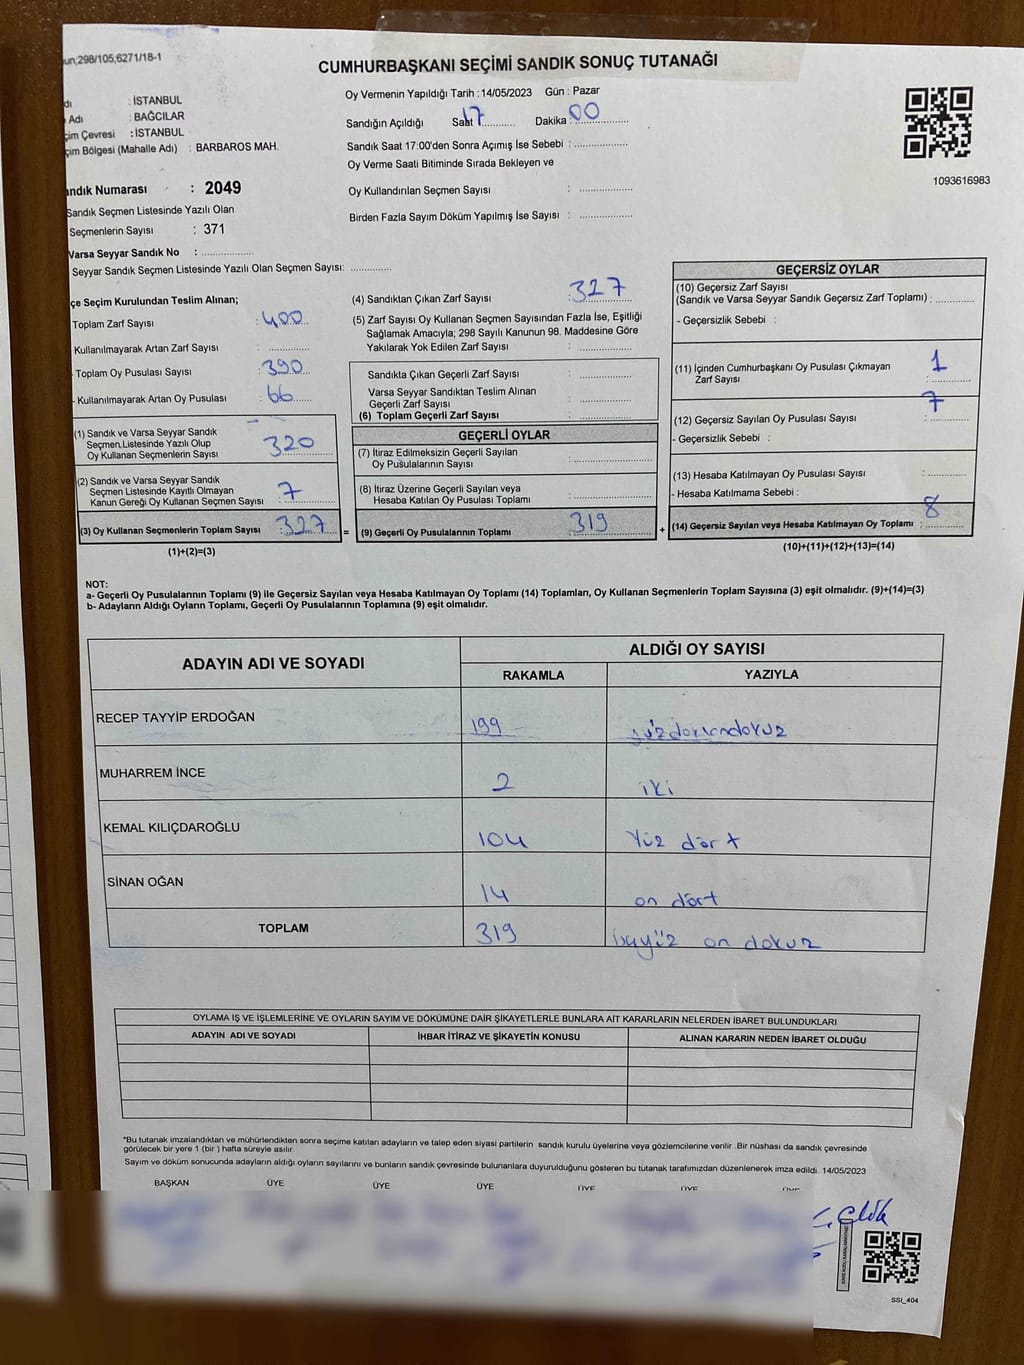 un,298/105,6271/18-1
CUMHURBAŞKANI SEÇİMİ SANDIK SONUÇ TUTANAĞI
dı : İSTANBUL
Adı : BAĞCILAR
çim Çevresi : İSTANBUL
çim Bölgesi (Mahalle Adı) : BARBAROS MAH.
Oy Vermenin Yapıldığı Tarih : 14/05/2023 Gün : Pazar
Sandığın Açıldığı Saat 17 Dakika 00
Sandık Saat 17:00'den Sonra Açımış İse Sebebi :
Oy Verme Saati Bitiminde Sırada Bekleyen ve
Oy Kullandırılan Seçmen Sayısı :
Birden Fazla Sayım Döküm Yapılmış İse Sayısı :
1093616983
ndık Numarası : 2049
Sandık Seçmen Listesinde Yazılı Olan
Seçmenlerin Sayısı : 371
Varsa Seyyar Sandık No :
Seyyar Sandık Seçmen Listesinde Yazılı Olan Seçmen Sayısı:
çe Seçim Kurulundan Teslim Alınan;
Toplam Zarf Sayısı : 400
Kullanılmayarak Artan Zarf Sayısı :
Toplam Oy Pusulası Sayısı : 390
Kullanılmayarak Artan Oy Pusulası : 66
(1) Sandık ve Varsa Seyyar Sandık
Seçmen Listesinde Yazılı Olup
Oy Kullanan Seçmenlerin Sayısı 320
(2) Sandık ve Varsa Seyyar Sandık
Seçmen Listesinde Kayıtlı Olmayan
Kanun Gereği Oy Kullanan Seçmen Sayısı : 7
(3) Oy Kullanan Seçmenlerin Toplam Sayısı : 327 =
(1)+(2)=(3)
(4) Sandıktan Çıkan Zarf Sayısı : 327
(5) Zarf Sayısı Oy Kullanan Seçmen Sayısından Fazla İse, Eşitliği
Sağlamak Amacıyla; 298 Sayılı Kanunun 98. Maddesine Göre
Yakılarak Yok Edilen Zarf Sayısı :
Sandıkta Çıkan Geçerli Zarf Sayısı :
Varsa Seyyar Sandıktan Teslim Alınan
Geçerli Zarf Sayısı :
(6) Toplam Geçerli Zarf Sayısı :
GEÇERLİ OYLAR
(7) İtiraz Edilmeksizin Geçerli Sayılan
Oy Pusulalarının Sayısı :
(8) İtiraz Üzerine Geçerli Sayılan veya
Hesaba Katılan Oy Pusulası Toplamı :
(9) Geçerli Oy Pusulalarının Toplamı : 319 +
GEÇERSİZ OYLAR
(10) Geçersiz Zarf Sayısı
(Sandık ve Varsa Seyyar Sandık Geçersiz Zarf Toplamı) :
- Geçersizlik Sebebi :
(11) İçinden Cumhurbaşkanı Oy Pusulası Çıkmayan
Zarf Sayısı : 1
(12) Geçersiz Sayılan Oy Pusulası Sayısı : 7
- Geçersizlik Sebebi :
(13) Hesaba Katılmayan Oy Pusulası Sayısı :
- Hesaba Katılmama Sebebi :
(14) Geçersiz Sayılan veya Hesaba Katılmayan Oy Toplamı : 8
(10)+(11)+(12)+(13)=(14)
NOT:
a- Geçerli Oy Pusulalarının Toplamı (9) ile Geçersiz Sayılan veya Hesaba Katılmayan Oy Toplamı (14) Toplamları, Oy Kullanan Seçmenlerin Toplam Sayısına (3) eşit olmalıdır. (9)+(14)=(3)
b- Adayların Aldığı Oyların Toplamı, Geçerli Oy Pusulalarının Toplamına (9) eşit olmalıdır.
ADAYIN ADI VE SOYADI ALDIĞI OY SAYISI
RAKAMLA YAZIYLA
RECEP TAYYİP ERDOĞAN 199 yüzdoksandokuz
MUHARREM İNCE 2 iki
KEMAL KILIÇDAROĞLU 104 Yüz dört
SİNAN OĞAN 14 on dört
TOPLAM 319 üçyüz on dokuz
OYLAMA İŞ VE İŞLEMLERİNE VE OYLARIN SAYIM VE DÖKÜMÜNE DAİR ŞİKAYETLERLE BUNLARA AİT KARARLARIN NELERDEN İBARET BULUNDUKLARI
ADAYIN ADI VE SOYADI İHBAR İTİRAZ VE ŞİKAYETİN KONUSU ALINAN KARARIN NEDEN İBARET OLDUĞU
*Bu tutanak imzalandıktan ve mühürlendikten sonra seçime katılan adayların ve talep eden siyasi partilerin sandık kurulu üyelerine veya gözlemcilerine verilir .Bir nüshası da sandık çevresinde
görülecek bir yere 1 (bir ) hafta süreyle asılır.
Sayım ve döküm sonucunda adayların aldığı oyların sayılarını ve bunların sandık çevresinde bulunanlara duyurulduğunu gösteren bu tutanak tarafımızdan düzenlenerek imza edildi. 14/05/2023
BAŞKAN ÜYE ÜYE ÜYE ÜYE ÜYE ÜYE
Çelik
SSI_404